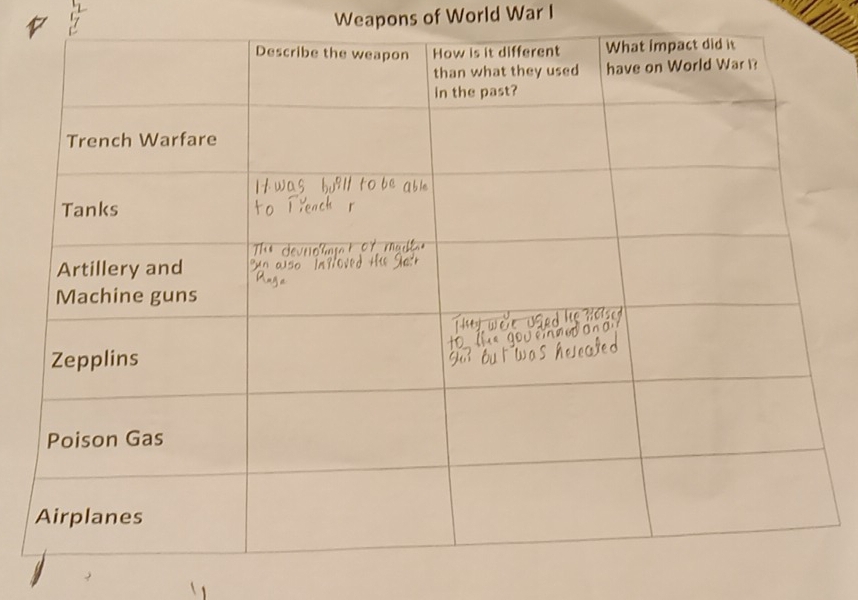 Weapons of World War I
Describe the weapon
How is it different
than what they used
in the past?
What impact did it
have on World War I?
Trench Warfare
Tanks
It was built to be able
to Trench r
Artillery and
Machine guns
The of
gun also the
Zepplins
They were used
to the
but was
Poison Gas
Airplanes